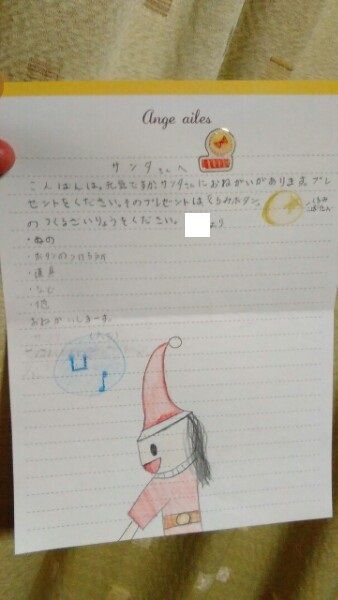 Ange ailes
サンタさんへ
こんばんは。元気ですか?サンタさんにおねがいがあります。プレ
ゼントをください。そのプレゼントはくるみボタン。
のつくるざいりょうをください。 より
くるみ
ぼたん
・ぬの
・ボタンの
・道具
・など
・他
おねがいしまーす。